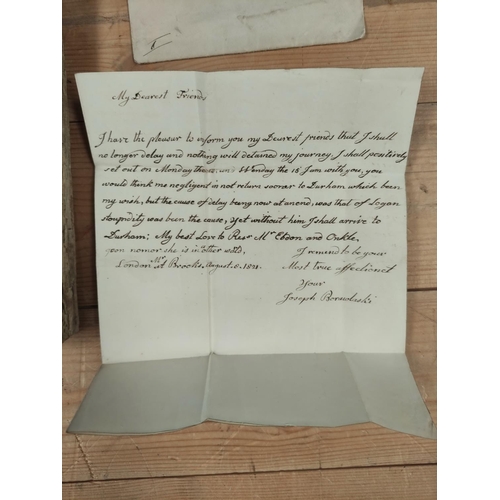 My Dearest Friends
I have the pleasur to inform you my Dearest friends that I shall
no longer delay and nothing will detained my journey, I shall positively
set out on Monday the and the 15 I am with you, you
would think me negligent in not return sooner to Durham which been
my wish, but the cause of delay being now at an end, was that of
stoupidity was been the cause, yet without him I shall arrive to
Durham; My best Love to Mr Ebdon and Onkle,
nomor she is in other world,
I remind to be your
London at Mrs Brooks, August 8, 1821.
Most true affectionet
Your
Joseph Boruwlaski